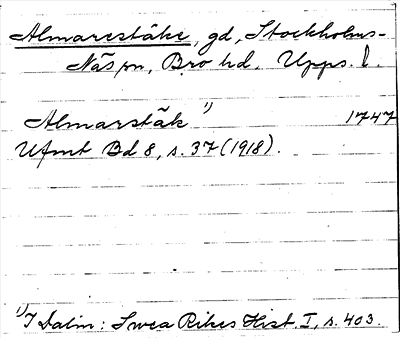 Almarestäke, gd, Stockholms-
Näs sn, Bro hd. Upps. l.
Almarstäk ¹⁾ 1747
Ufmt Bd 8, s. 37 (1918).
¹⁾ I Dalin: Swea Rikes Hist. I, s. 403.